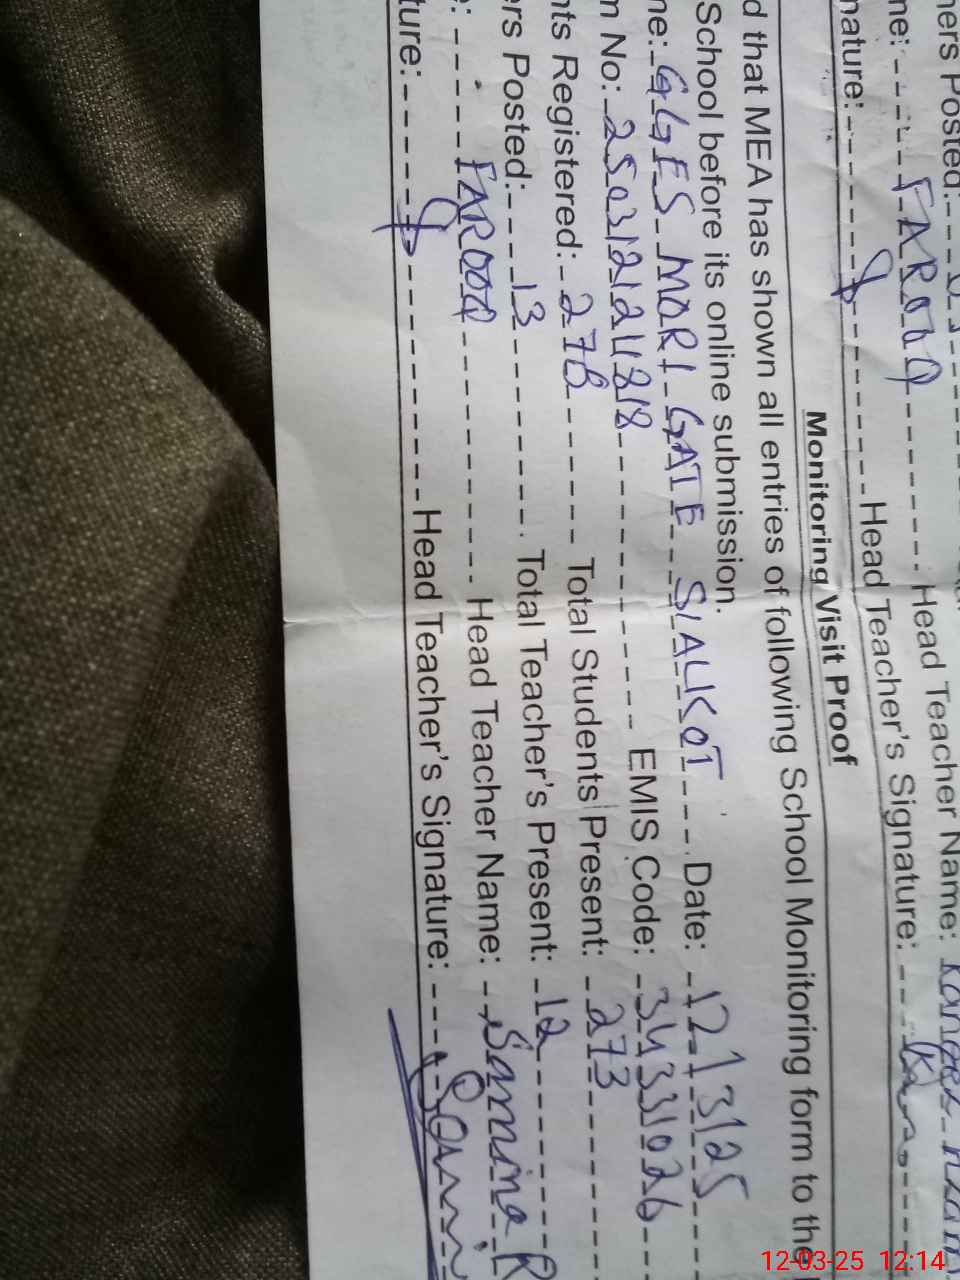 ners Posted:
Head Teacher Name:
me: FAROOQ
nature: Head Teacher's Signature:
Monitoring Visit Proof
d that MEA has shown all entries of following School Monitoring form to the
School before its online submission.
ne: GGES MORI GATE SIALKOT Date: 12/3/25
m No: 25031212481818 EMIS Code: 34331026
nts Registered: 278 Total Students Present: 273
ers Posted: 13 Total Teacher's Present: 12
e: FAROOQ Head Teacher Name: Samina R
ture: Head Teacher's Signature:
12-03-25 12:14